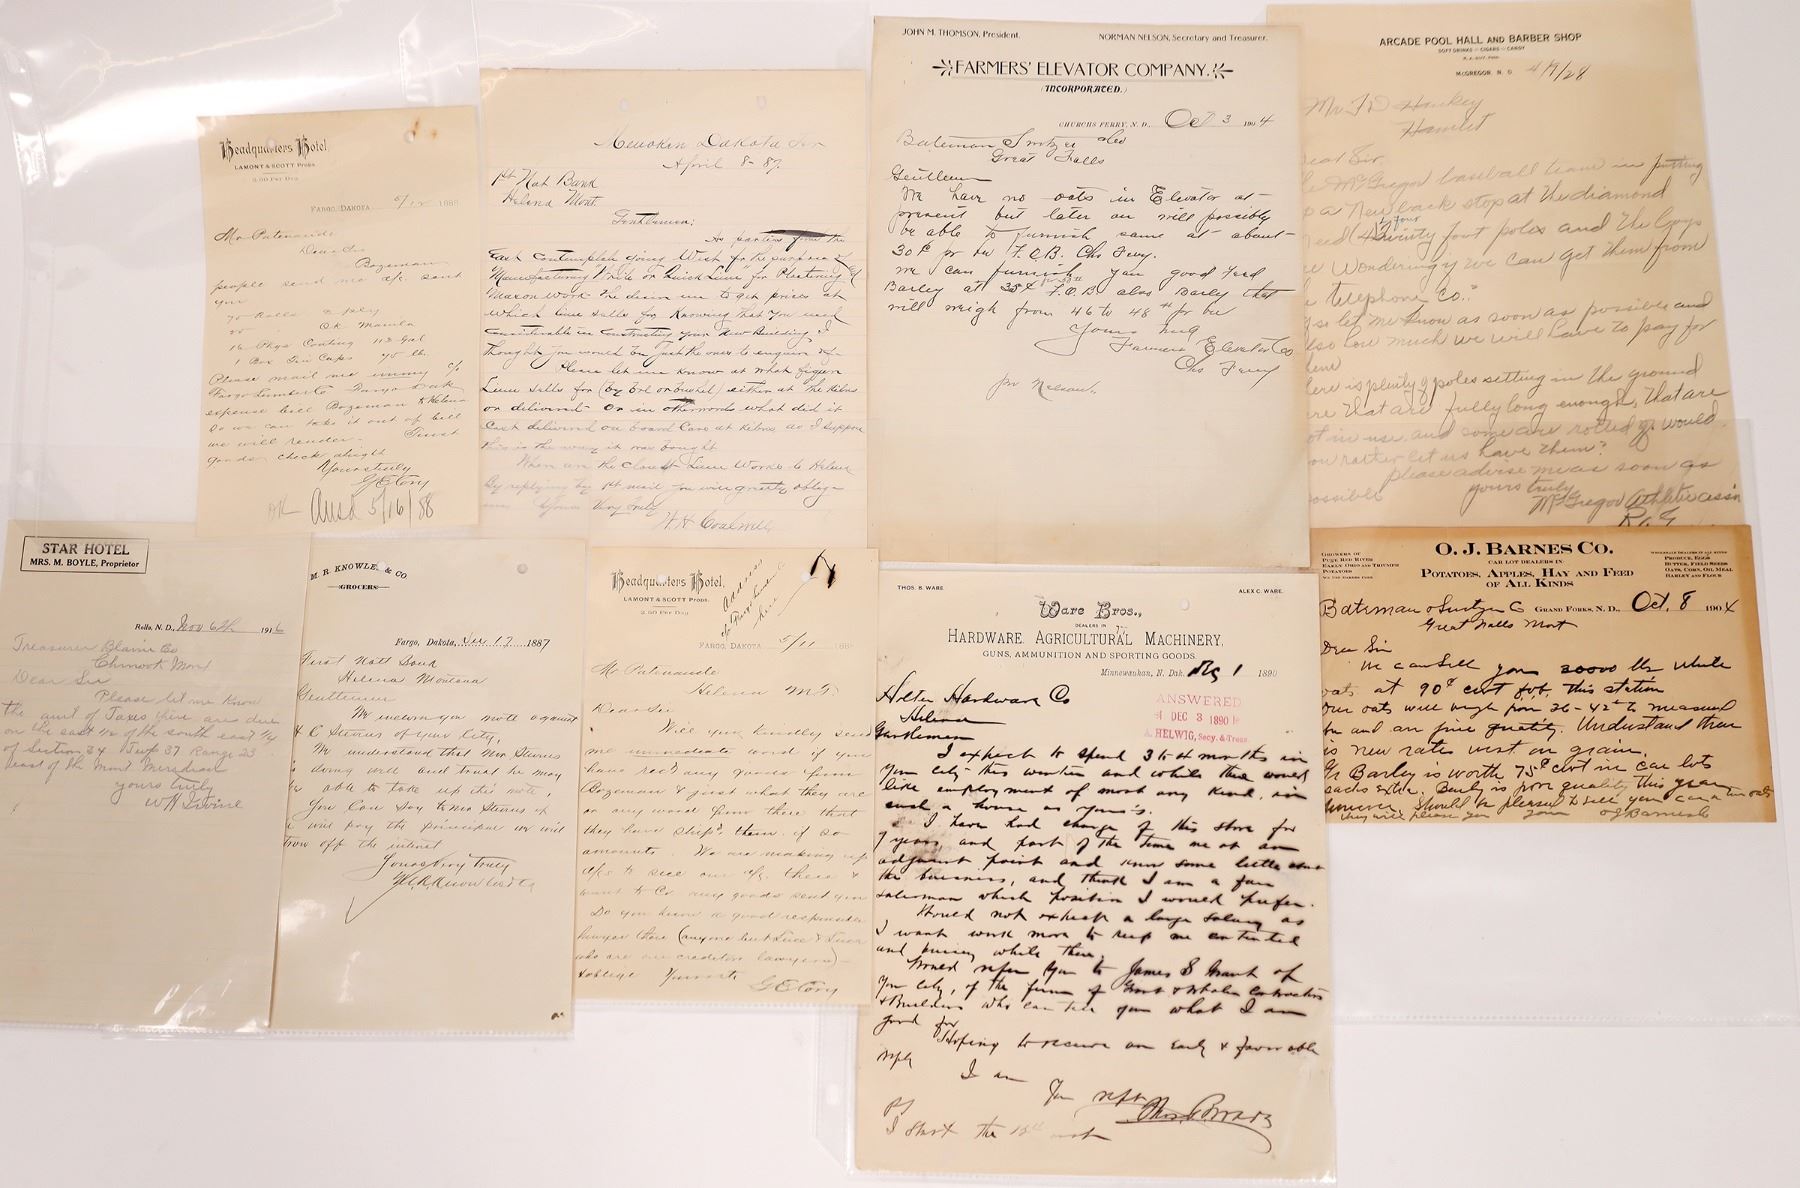 Headquarters Hotel,
LAMONT & SCOTT Props.
2.00 Per Day
FARGO, DAKOTA 5/12 1888
Mr Patenaude
Dear Sir
Bozeman
people send me a/c sent
you
70 Rolls 2 ply
Ok Manila
16 Pkgs Coating 112 Gal
1 Box Tin Caps 40 lb.
Please mail me c/o
Fargo Fargo Dak
expense bill Bozeman & Helena
So we can take it out of bill
we will render. Trust
goods check alright
Yours truly
G E Cory
OK Ansd 5/16/88
Menoken Dakota Ter
April 8-87.
1st Nat Bank
Helena Mont.
Gentlemen:
As parties from the
East Contemplate going West for the purpose of
Manufacturing White or Quick Lime for Plastering &
Mason work they desire me to get prices at
which Lime sells for, Knowing that you used
considerable in constructing your New Building, I
thought you would be just the ones to enquire of.
Please let me know at what figure
Lime sells for (by Brl or bushel) either at the Kilns
or delivered or in other words what did it
Cost delivered on board Cars at Kilns as I suppose
this is the way it was bought
Where are the closest Lime Works to Helena
By replying by 1st mail you will greatly oblige
Yours Very Truly
W H
JOHN M. THOMSON, President. NORMAN NELSON, Secretary and Treasurer.
FARMERS' ELEVATOR COMPANY,
(INCORPORATED.)
CHURCHS FERRY, N. D., Oct 3 1904
Bateman Switzer & Co
Great Falls
Gentlemen
We have no oats in Elevator at
present but later on will possibly
be able to furnish same at about
30¢ per bu F.O.B. Chs Ferry.
We can furnish you good Feed
Barley at 35¢ F.O.B also Barley that
will weigh from 46 to 48 # per bu
Yours Truly
Farmers Elevator Co
Chs Ferry
per Nelson.
ARCADE POOL HALL AND BARBER SHOP
SOFT DRINKS - CIGARS - CANDY
MCGREGOR, N. D. 4/9/28
Mr F D Hankey
Hamlet
Dear Sir
The McGregor baseball team in putting
up a New back stop at the diamond
need (4) thirty four foot poles and the boys
are Wondering if we can get them from
the telephone Co.?
Please let me know as soon as possible and
also how much we will have to pay for
them
There is plenty of poles sitting in the ground
here that are fully long enough, that are
not in use, and some are rotted of would
you rather let us have them?
please advise me as soon as
possible yours truly
McGregor Athletic assn
STAR HOTEL
MRS. M. BOYLE, Proprietor
Rolla, N. D., Nov 6th 1916
Treasurer Blaine Co
Chinook Mont
Dear Sir
Please let me know
the amt of Taxes there are due
on the east 1/2 of the south east 1/4
of Section 34 Twp 37 Range 23
east of the Mont Meridian
yours truly
M. R. KNOWLES & CO
GROCERS
Fargo, Dakota, 17 1887
First Natl Bank
Helena Montana
Gentlemen
We inclose you note against
H C Stevens of your City,
We understand that Mr Stevens
is doing well and trust he may
be able to take up this note,
You Can Say to Mr Stevens if
he will pay the principal we will
throw off the interest
Yours Very Truly
M R Knowles & Co
Headquarters Hotel,
LAMONT & SCOTT Props.
2.00 Per Day
Address
here
FARGO, DAKOTA 5/11 188
Mr Patenaude
Helena M.T.
Dear Sir
Will you kindly send
me immediate word if you
have recd any goods from
Bozeman & just what they are
or any word from there that
they have shipd them. if so
amounts. We are making up
a/cs to see our a/c there &
want to Cr any goods sent you
Do you know a good responsible
lawyer there (anyone but Luce & Luce
who are our creditors lawyers)
& oblige Yours etc
G E Cory
THOS. B. WARE. ALEX C. WARE.
Ware Bros.,
DEALERS IN
HARDWARE, AGRICULTURAL MACHINERY,
GUNS, AMMUNITION AND SPORTING GOODS.
Minnewaukan, N. Dak. Dec 1 1890
ANSWERED
DEC 3 1890
A. HELWIG, Secy. & Treas.
Holter Hardware Co
Helena
Gentlemen
I expect to spend 3 to 4 months in
your city this winter and while there would
like employment of most any kind, in
such a house as yours.
I have had charge of this store for
7 years, and part of the time one at an
adjacent point and know some little about
the business, and think I am a fair
salesman which position I would prefer.
Would not expect a large salary as
I want work more to keep me contented
and busy while there.
Would refer you to James S Grant of
your city, of the firm of Grant & Whalen Contractors
& Builders who can tell you what I am
good for
Hoping to receive an Early & favorable
reply
I am
Your respt
Thos B Ware
PS
I start the 15th
GROWERS OF
PURE RED RIVER
EARLY OHIO AND TRIUMPH
POTATOES
O. J. BARNES CO.
CAR LOT DEALERS IN
POTATOES, APPLES, HAY AND FEED
OF ALL KINDS
WHOLESALE DEALERS IN ALL KINDS
PRODUCE, EGGS
BUTTER, FIELD SEEDS
OATS, CORN, OIL MEAL
BARLEY AND FLOUR
GRAND FORKS, N. D., Oct. 8 1904
Bateman & Switzer Co
Great Falls Mont
Dear Sir
We can sell you 30000 lbs white
oats at 90¢ cwt f.o.b. this station
Our oats will weigh from 36-42 # to measured
bu and are fine quality. Understand there
is new rates west on grain.
Barley is worth 75¢ cwt in car lots
sacks extra. Barley is poor quality this year
however. Should be pleased to sell you car
they will please you Yours O J Barnes Co